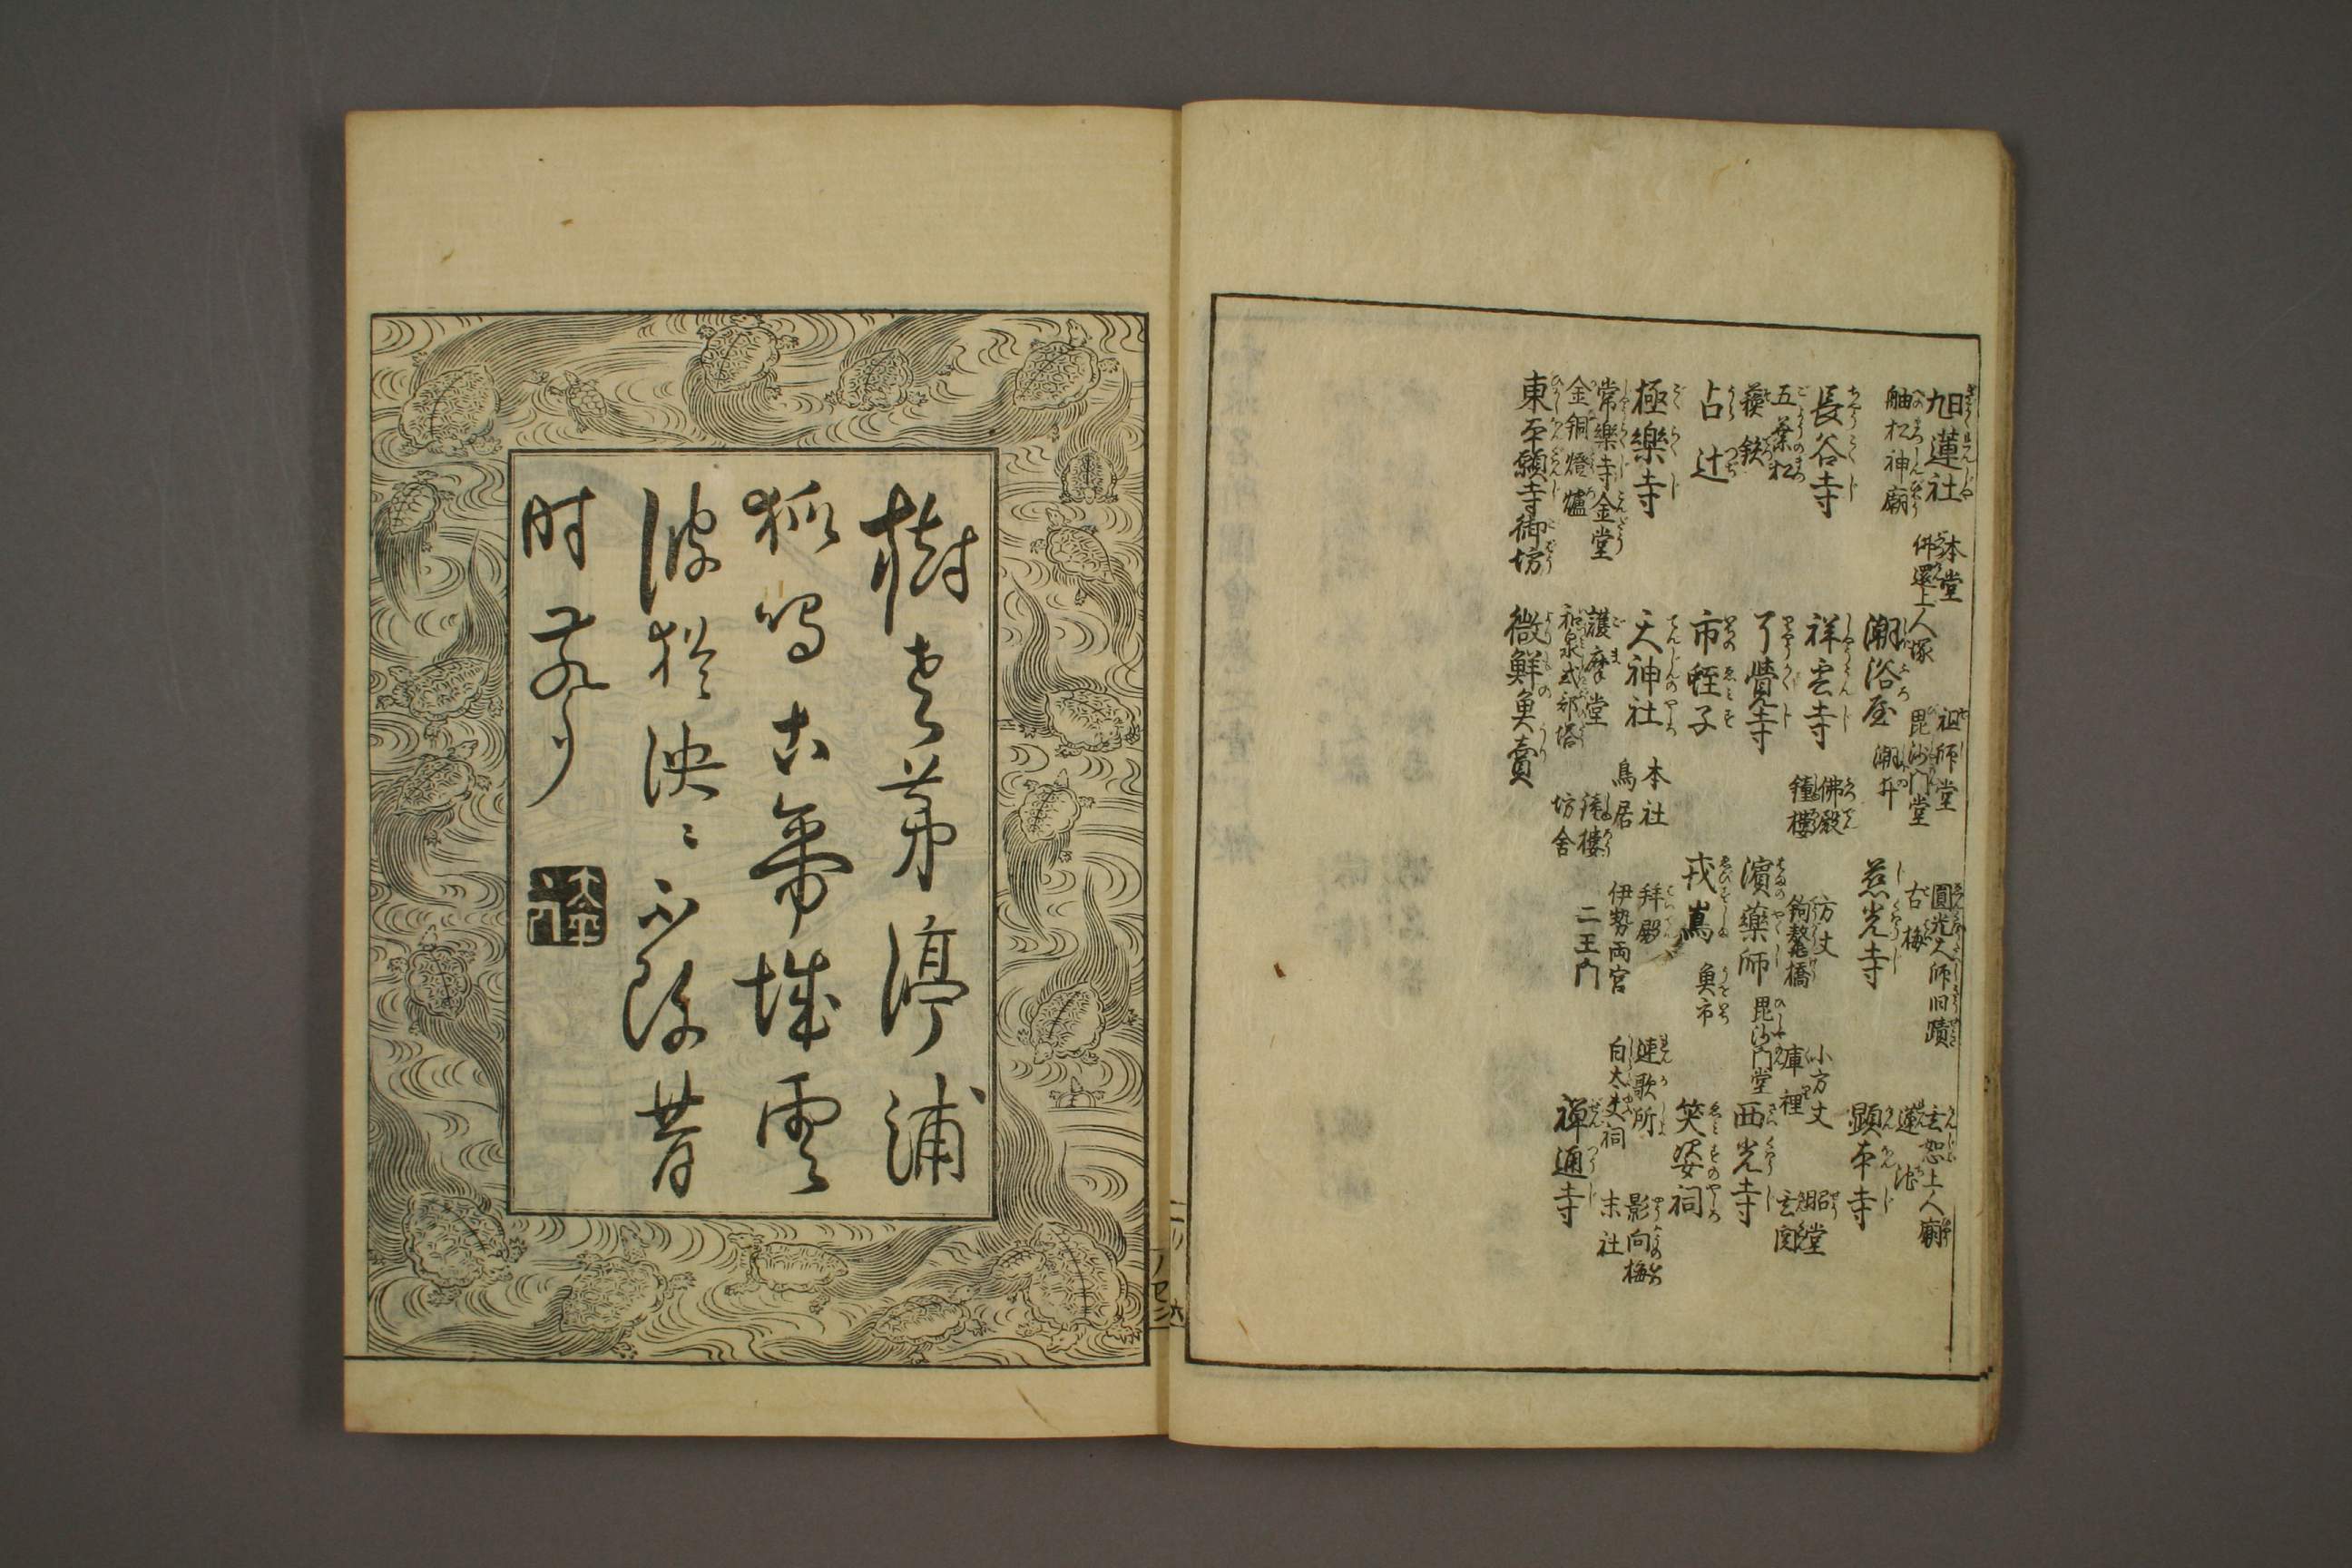 旭蓮社
本堂
祖師堂
圓光大師旧蹟
玄恕上人廟
舳松神廟
佛還上人塚
毘沙門堂
古梅
蓮池
潮浴屋
潮井
慈光寺
顕本寺
長谷寺
祥雲寺
佛殿
方丈
小方丈
昭堂
鐘樓
庫裡
玄関
五葉松
蘇鉄
了覺寺
濱藥師
毘沙門堂
西光寺
占辻
市蛭子
戎嶌
魚市
笑姿祠
極樂寺
天神社
本社
拜殿
連歌所
影向梅
鳥居
伊勢両宮
白太夫祠
末社
常樂寺金堂
護摩堂
鐘樓
二王門
禅通寺
金銅燈爐
和泉式部塔
坊舎
東本願寺御坊
微鮮魚賣
樹老茅渟浦
狐鳴古華城雲
波猶泱〻不改昔
時